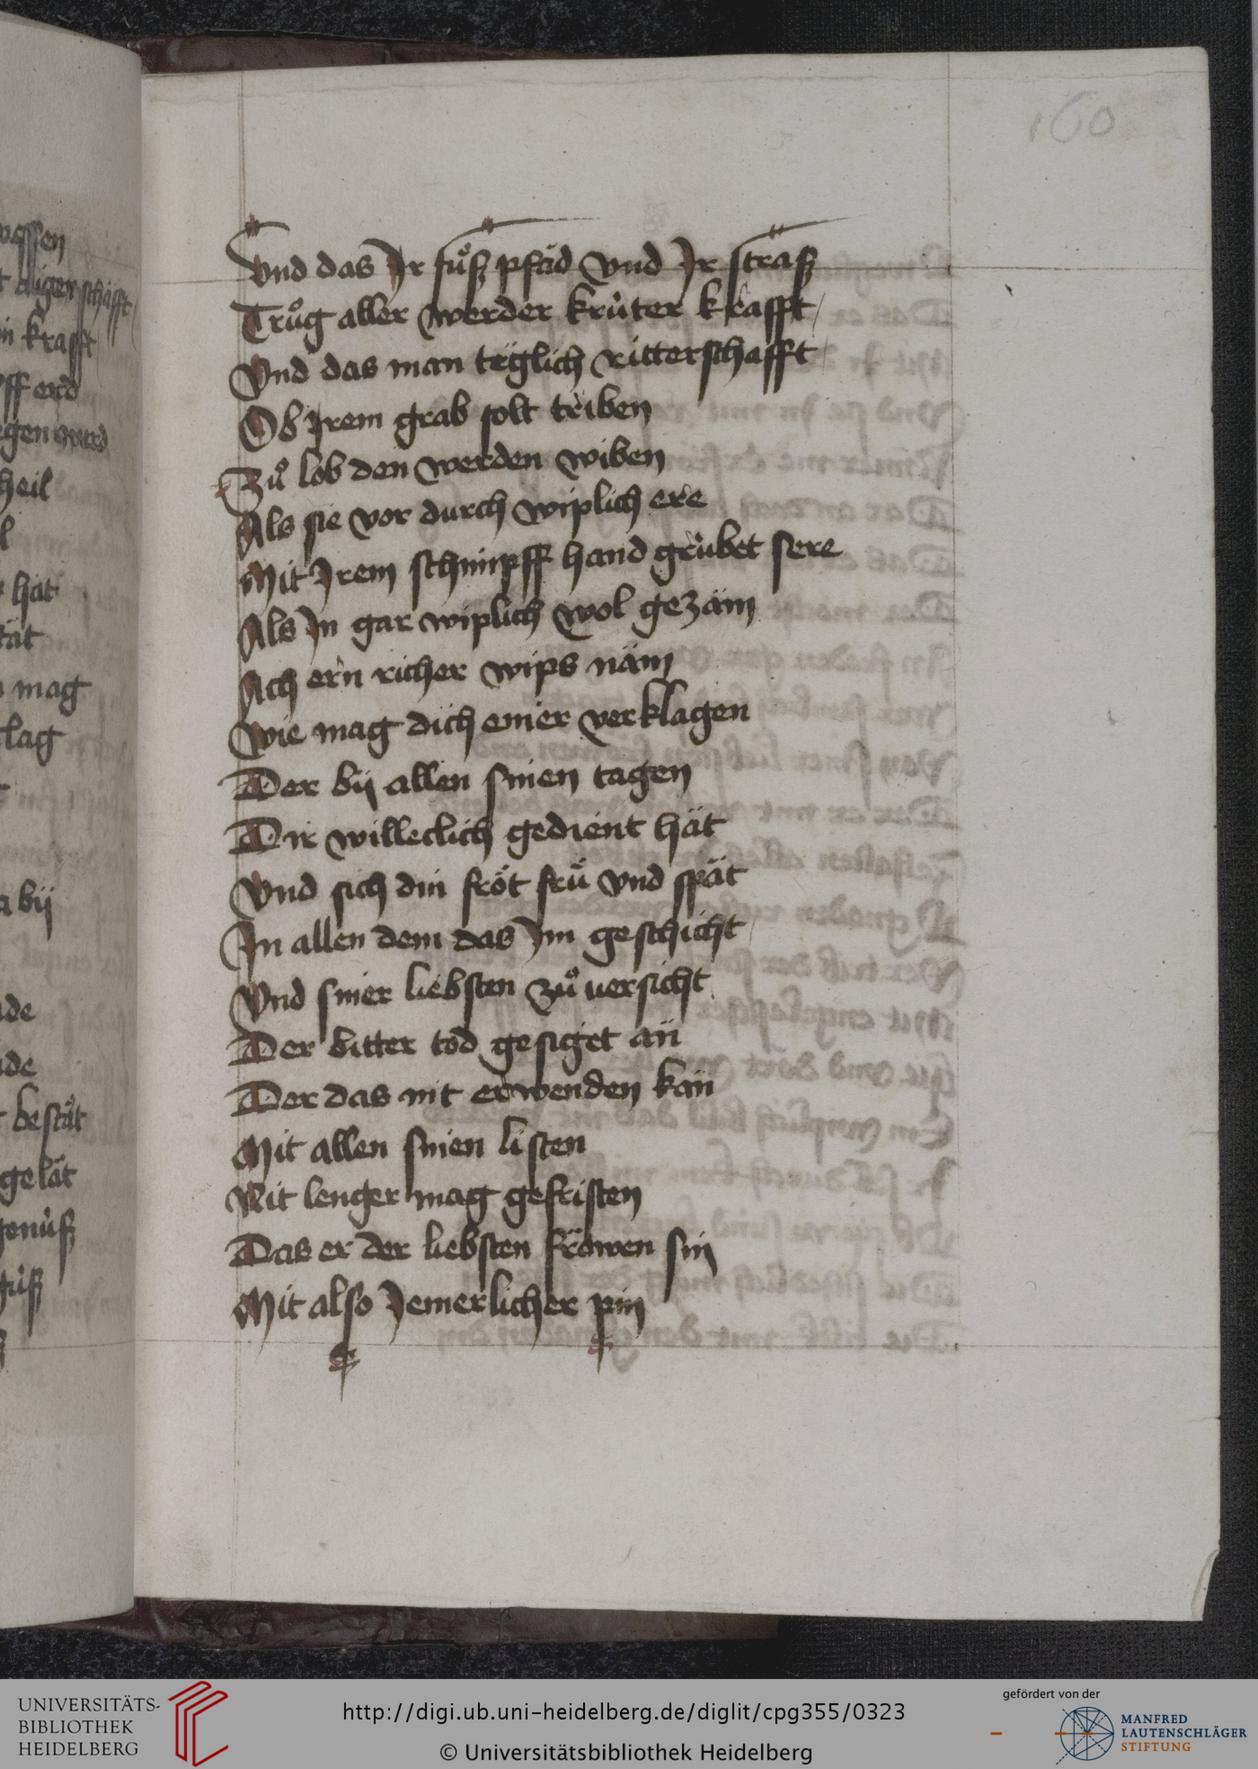 160
Vnd das Jr fuͦß pfäd vnd Jr straß
Truͦg aller werder krüter krafft
Vnd das man teglich ritterschafft
Ob Jrem grab solt triben
Zuͦ lob den werden wiben
Als sie vor durch wiplich ere
Mit Jrem schimpff hand grübet sere
Als Jn gar wiplich wol gezäm
Ach ern richer wips näm
Wie mag dich einer verklagen
Der bij allen sinen tagen
Dir willeclich gedient hät
Vnd sich din fröt frü vnd spät
Jn allen dem das Jm geschicht
Vnd siner liebsten zuͦ uersicht
Der bitter tod gesiget an
Der das nit erwenden kan
Mit allen sinen listen
Nit lenger mag gefristen
Das er der liebsten fröwen sin
Mit also Jemerlicher pin
wessen
krafft
heil
hät
mag
bij
gelät
UNIVERSITÄTS-
BIBLIOTHEK
HEIDELBERG
http://digi.ub.uni-heidelberg.de/diglit/cpg355/0323
© Universitätsbibliothek Heidelberg
gefördert von der
MANFRED
LAUTENSCHLÄGER
STIFTUNG